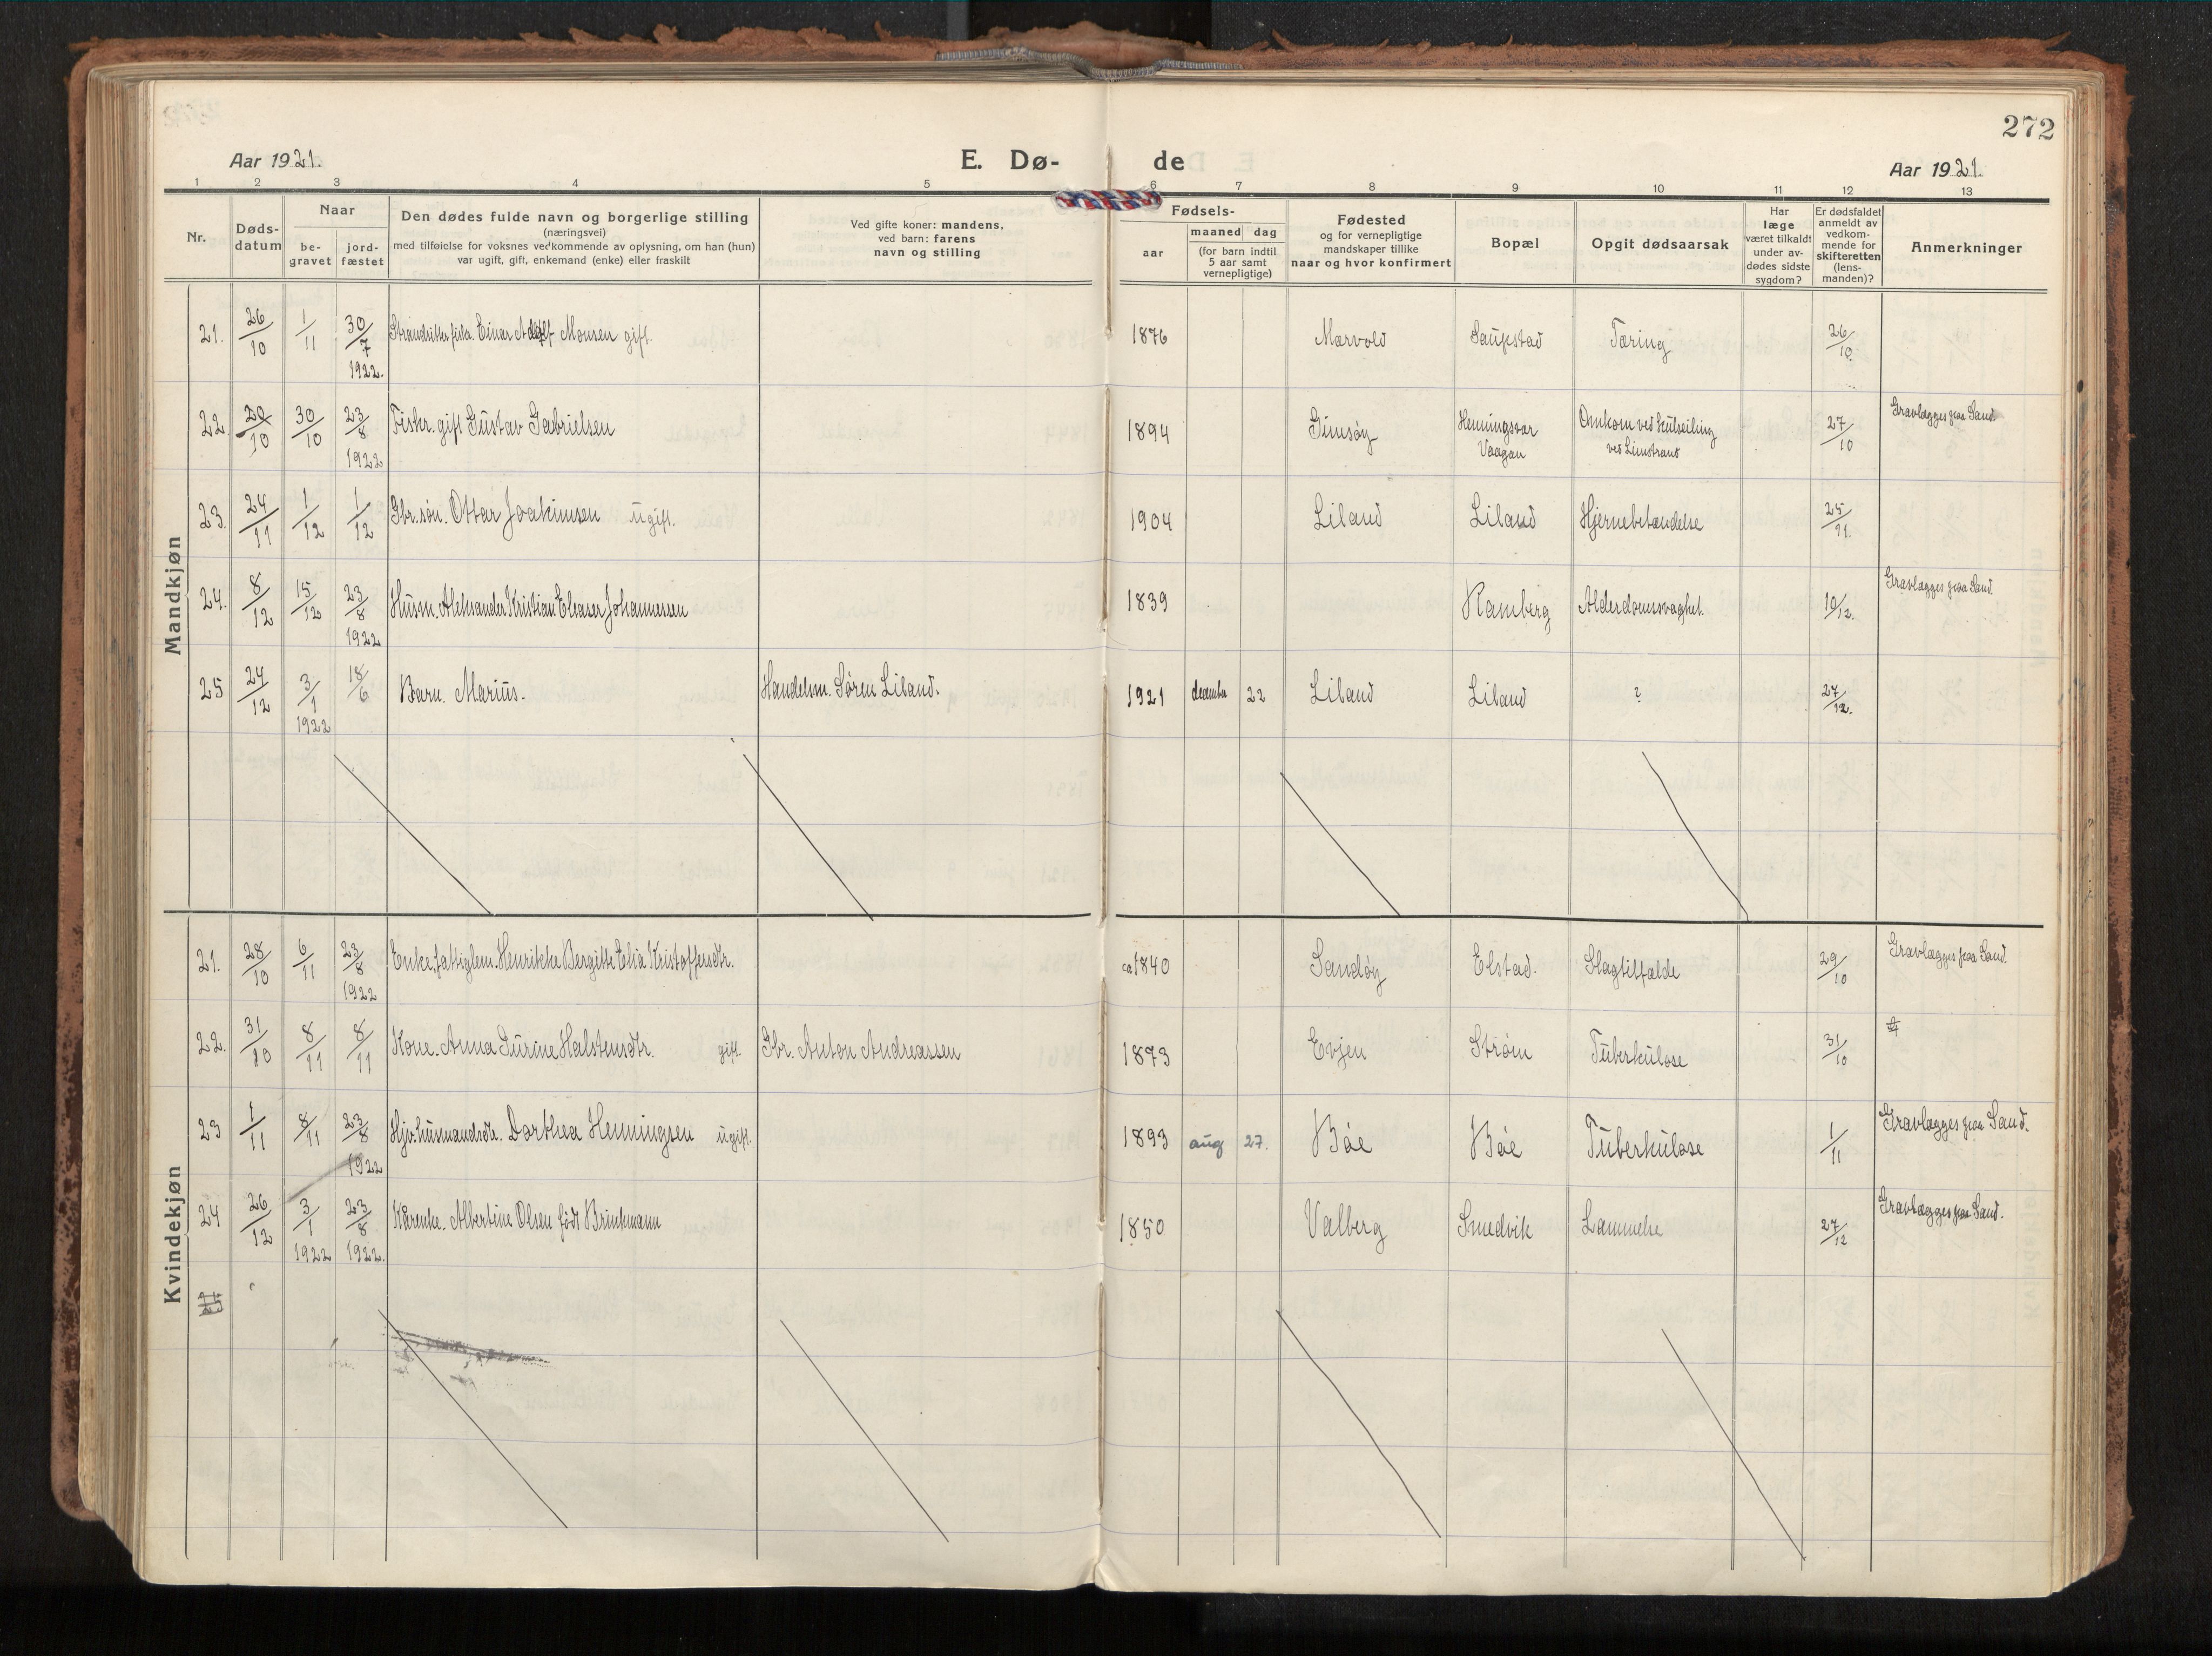 272
Aar 1921.
E. Dø-
de
Aar 1921.
1 2 3 4 5 6 7 8 9 10 11 12 13
Nr.
Døds-
datum
Naar
be-
gravet
jord-
fæstet
Den dødes fulde navn og borgerlige stilling
(næringsvei)
med tilføielse for voksnes vedkommende av oplysning, om han (hun)
var ugift, gift, enkemand (enke) eller fraskilt
Ved gifte koner: mandens,
ved barn: farens
navn og stilling
Fødsels-
aar
maaned dag
(for barn indtil
5 aar samt
vernepligtige)
Fødested
og for vernepligtige
mandskaper tillike
naar og hvor konfirmert
Bopæl
Opgit dødsaarsak
Har
læge
været tilkaldt
under av-
dødes sidste
sygdom?
Er dødsfaldet
anmeldt av
vedkom-
mende for
skifteretten
(lens-
manden)?
Anmerkninger
Mandkjøn
21. 26/10 1/11 30/7 1922. Einar Adolf Monsen gift. 1876 Mærvold Saupstad Tæring 26/10
22 20/10 30/10 23/8 1922 Fiskr. gift Gustav Gabrielsen 1894 Gimsøy Henningsvær Vaagan Omkom ved kulseiling ved Limstrand 27/10 Gravlægges paa Sand.
23. 24/11 1/12 1/12 Gbr.søn. Ottar Joakimsen ugift. 1904 Liland Liland Hjernebetændelse 25/11.
24. 8/12 15/12 23/8 1922 Husm. Aleksander Kristian Eleaser Johannessen 1839 Ramberg Alderdomssvaghet. 10/12. Gravlægges paa Sand.
25 24/12 3/1 1922 18/6 Barn. Marius. Handelsm. Søren Liland. 1921 december 22 Liland Liland ? 27/12.
Kvindekjøn
21. 28/10 6/11 23/8 1922 Enke, fattiglem. Henrikke Bergitte Elia Kristoffersdtr. ca 1840 Sandøy Elstad. Slagtilfælde 29/10 Gravlægges paa Sand.
22. 31/10 8/11 8/11 Kone. Anna Surine Halstensdtr. gift. Gbr. Anton Andreassen 1873 Evjen Strøm Tuberkulose 31/10
23 1/11 8/11 23/8 1922 Hjv. husmandsdtr. Dorthea Henningsen ugift. 1893 aug 27. Bøe Bøe Tuberkulose 1/11 Gravlægges paa Sand.
24 26/12 3/1 1922 23/8 1922. Kårenke. Albertine Olsen født Brinkmann 1850 Valberg Smedvik Lammelse 27/12 Gravlægges paa Sand.